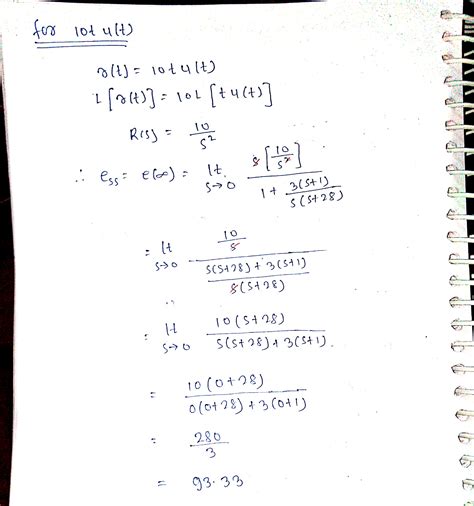 for 10t u(t)
r(t) = 10t u(t)
L[r(t)] = 10L[t u(t)]
R(s) = 10/s²
∴ ess = e(∞) = lt s→0 s[10/s²] / (1 + 3(s+1)/s(s+28))
= lt s→0 (10/s) / ((s(s+28) + 3(s+1)) / s(s+28))
= lt s→0 10(s+28) / (s(s+28) + 3(s+1))
= 10(0+28) / (0(0+28) + 3(0+1))
= 280/3
= 93.33